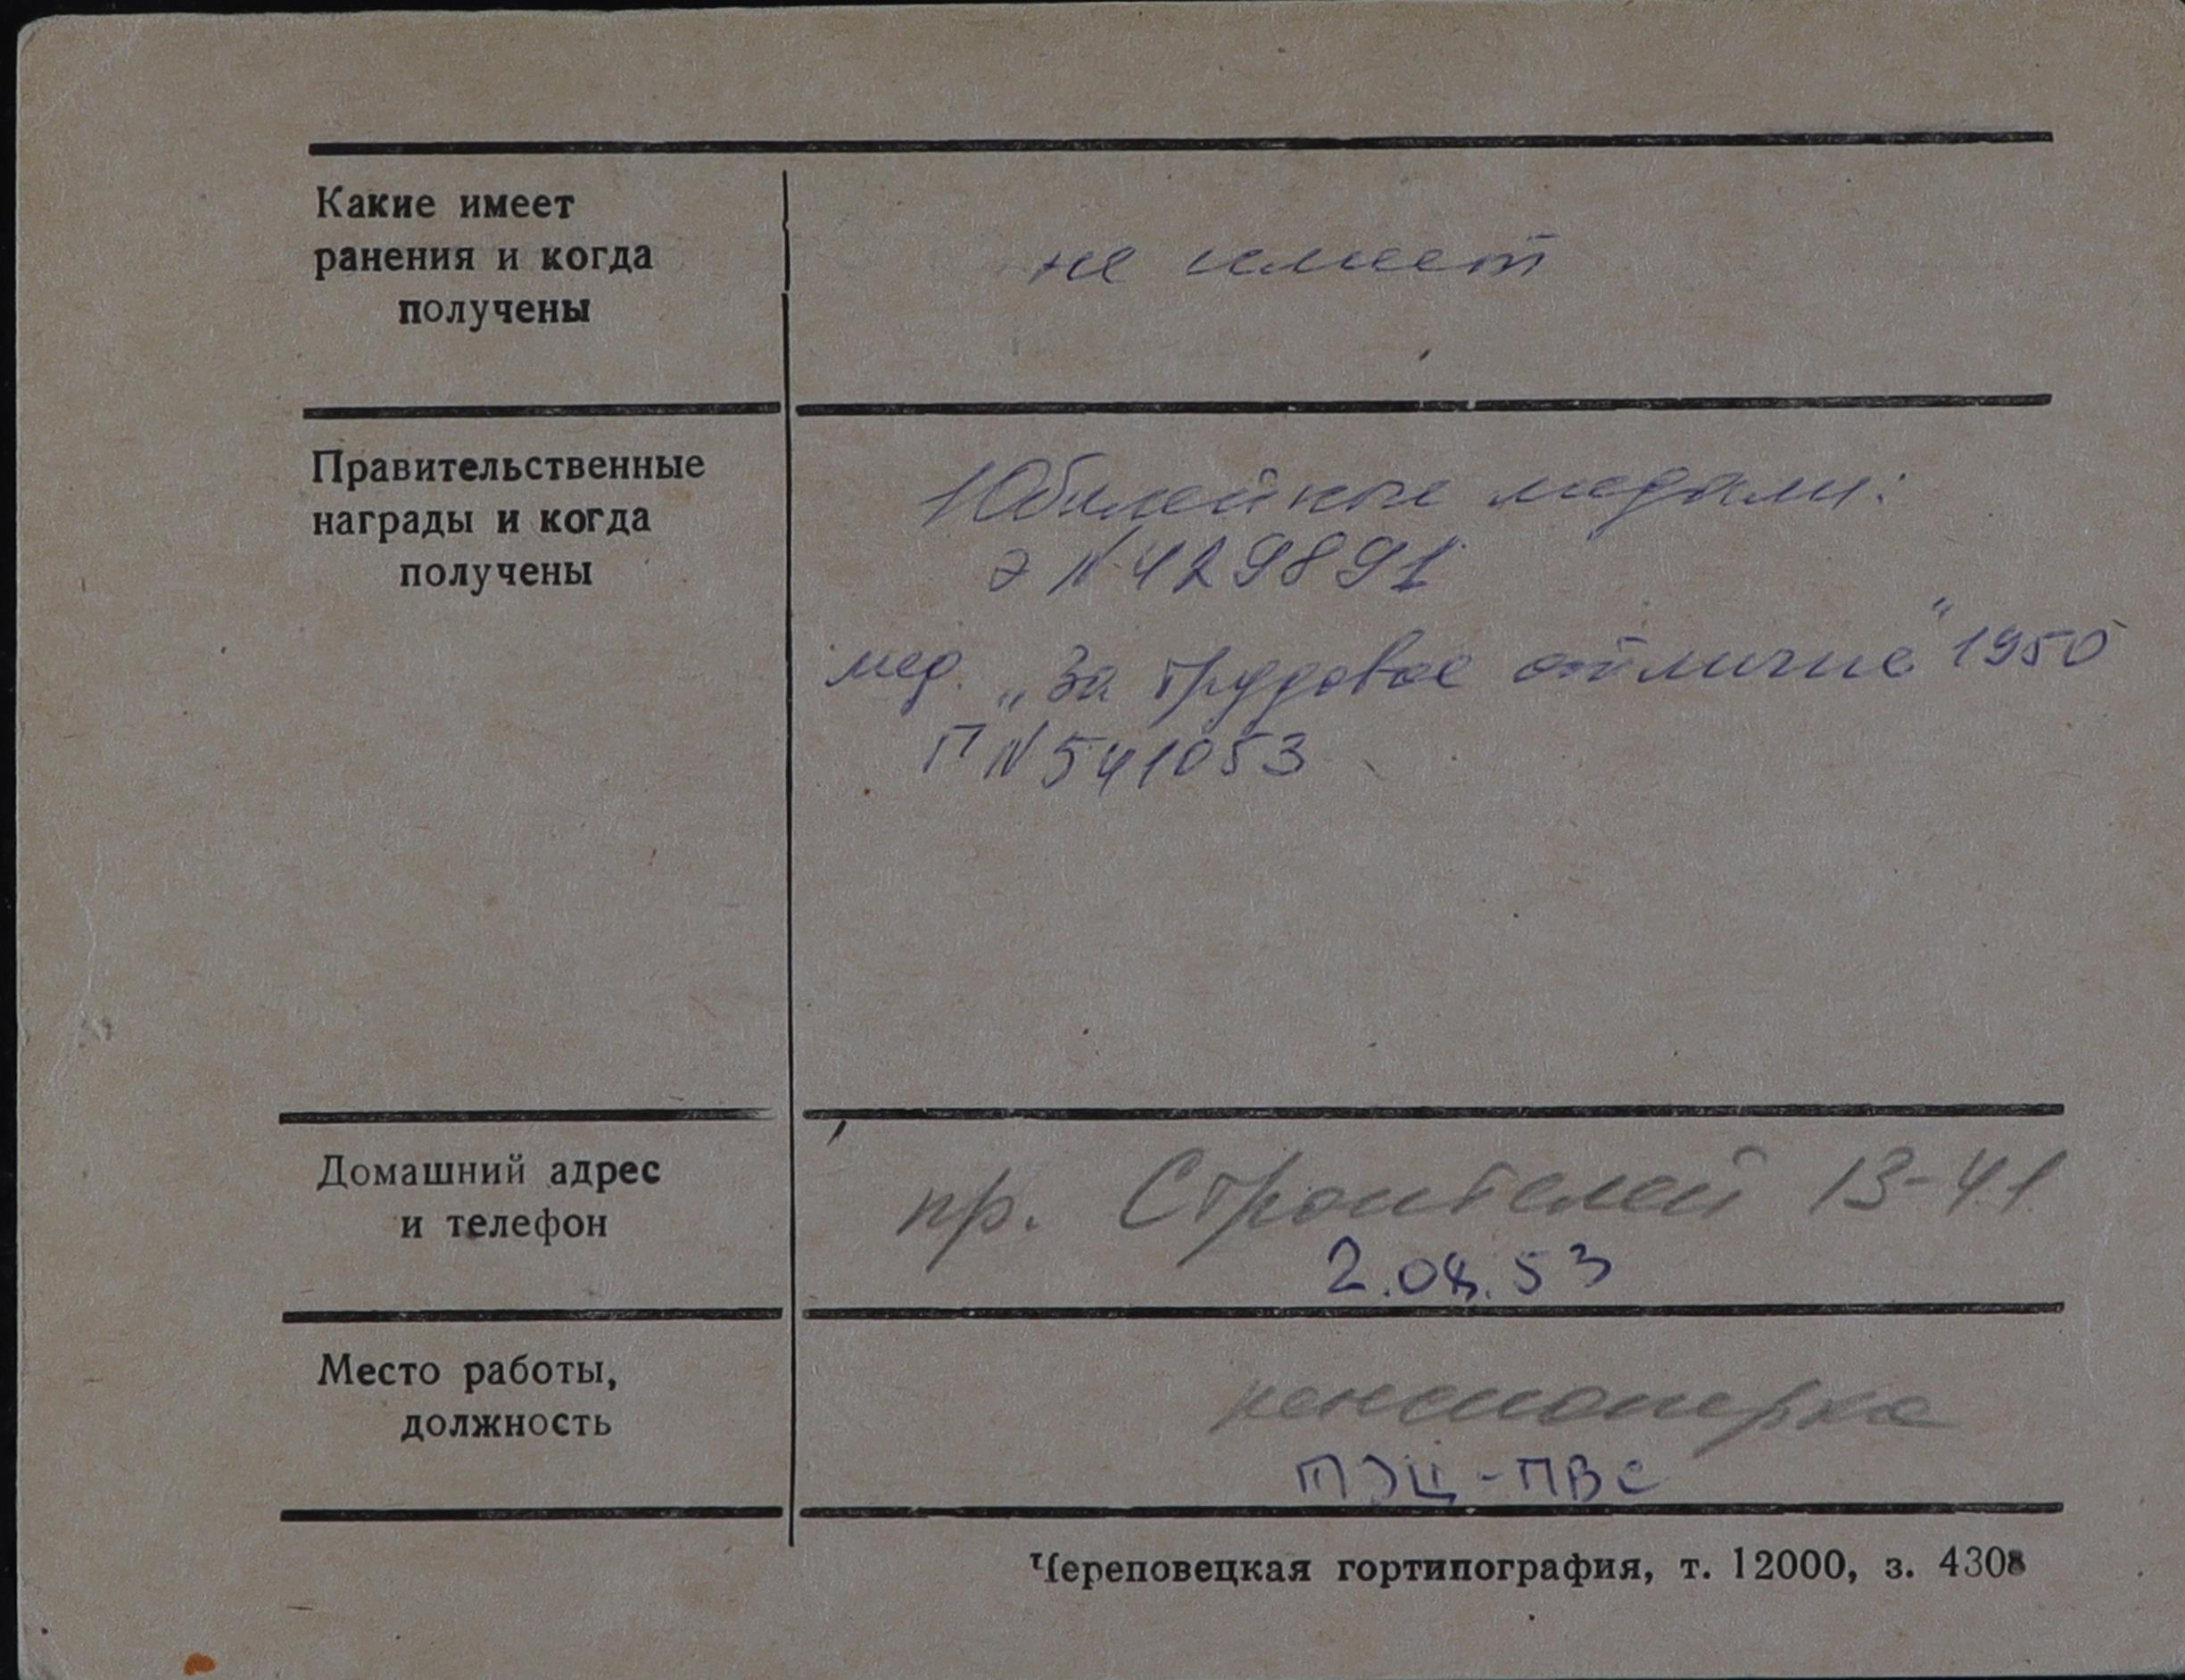 Какие имеет
ранения и когда
получены
не имеет
Правительственные
награды и когда
получены
Юбилейные медали:
Э N 429891
мед. „За трудовое отличие" 1950
П N 541053
Домашний адрес
и телефон
пр. Строителей 13-41
2.08.53
Место работы,
должность
пенсионерка
ТЭЦ-ПВС
Череповецкая гортипография, т. 12000, з. 4308